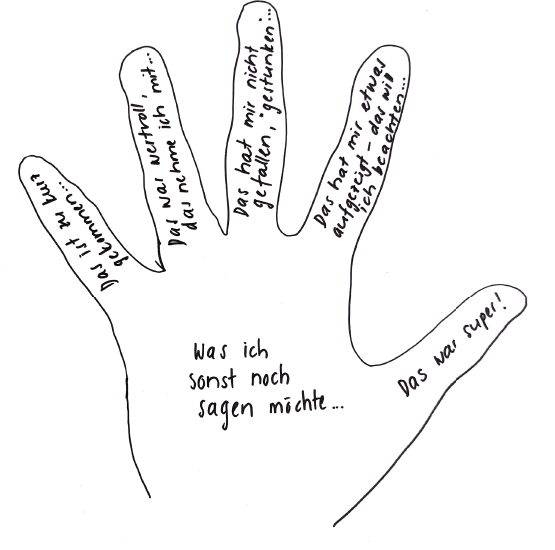 Das ist zu kurz
gekommen...
Das war wertvoll,
das nehme ich mit...
Das hat mir nicht
gefallen, "gestunken...
Das hat mir etwas
aufgezeigt - das will
ich beachten...
Das war super!
Was ich
sonst noch
sagen möchte...